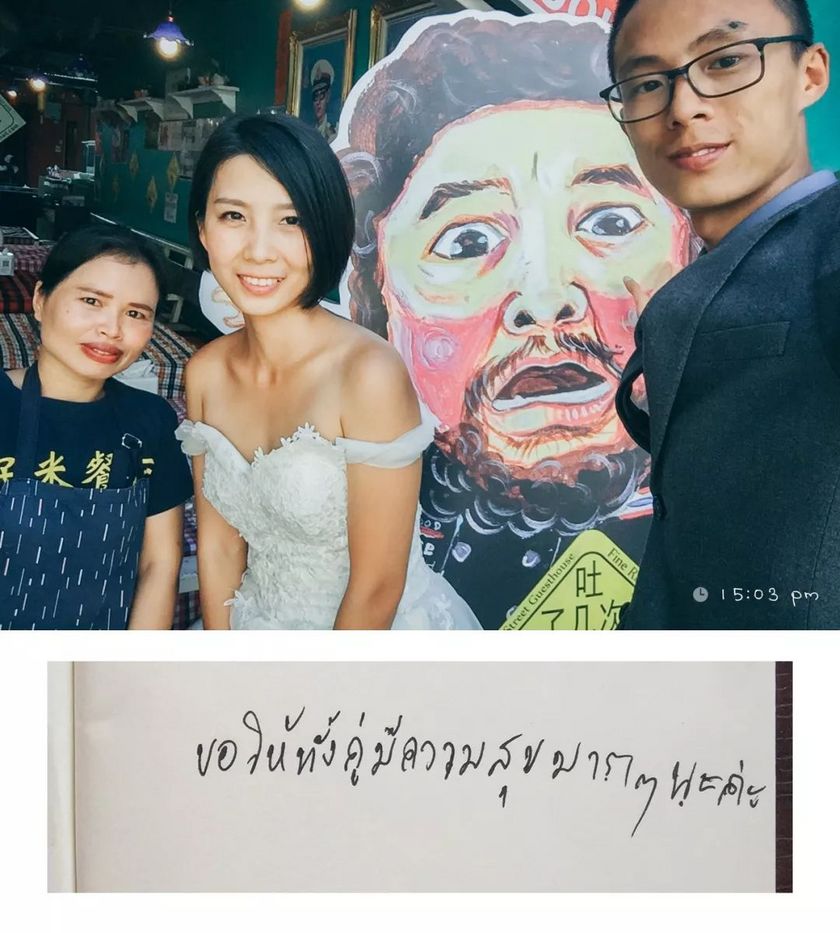 米餐
15:03 pm
吐
了几次
Street Guesthouse
Fine
ขอให้ทั้งคู่มีความสุขมากๆนะค่ะ